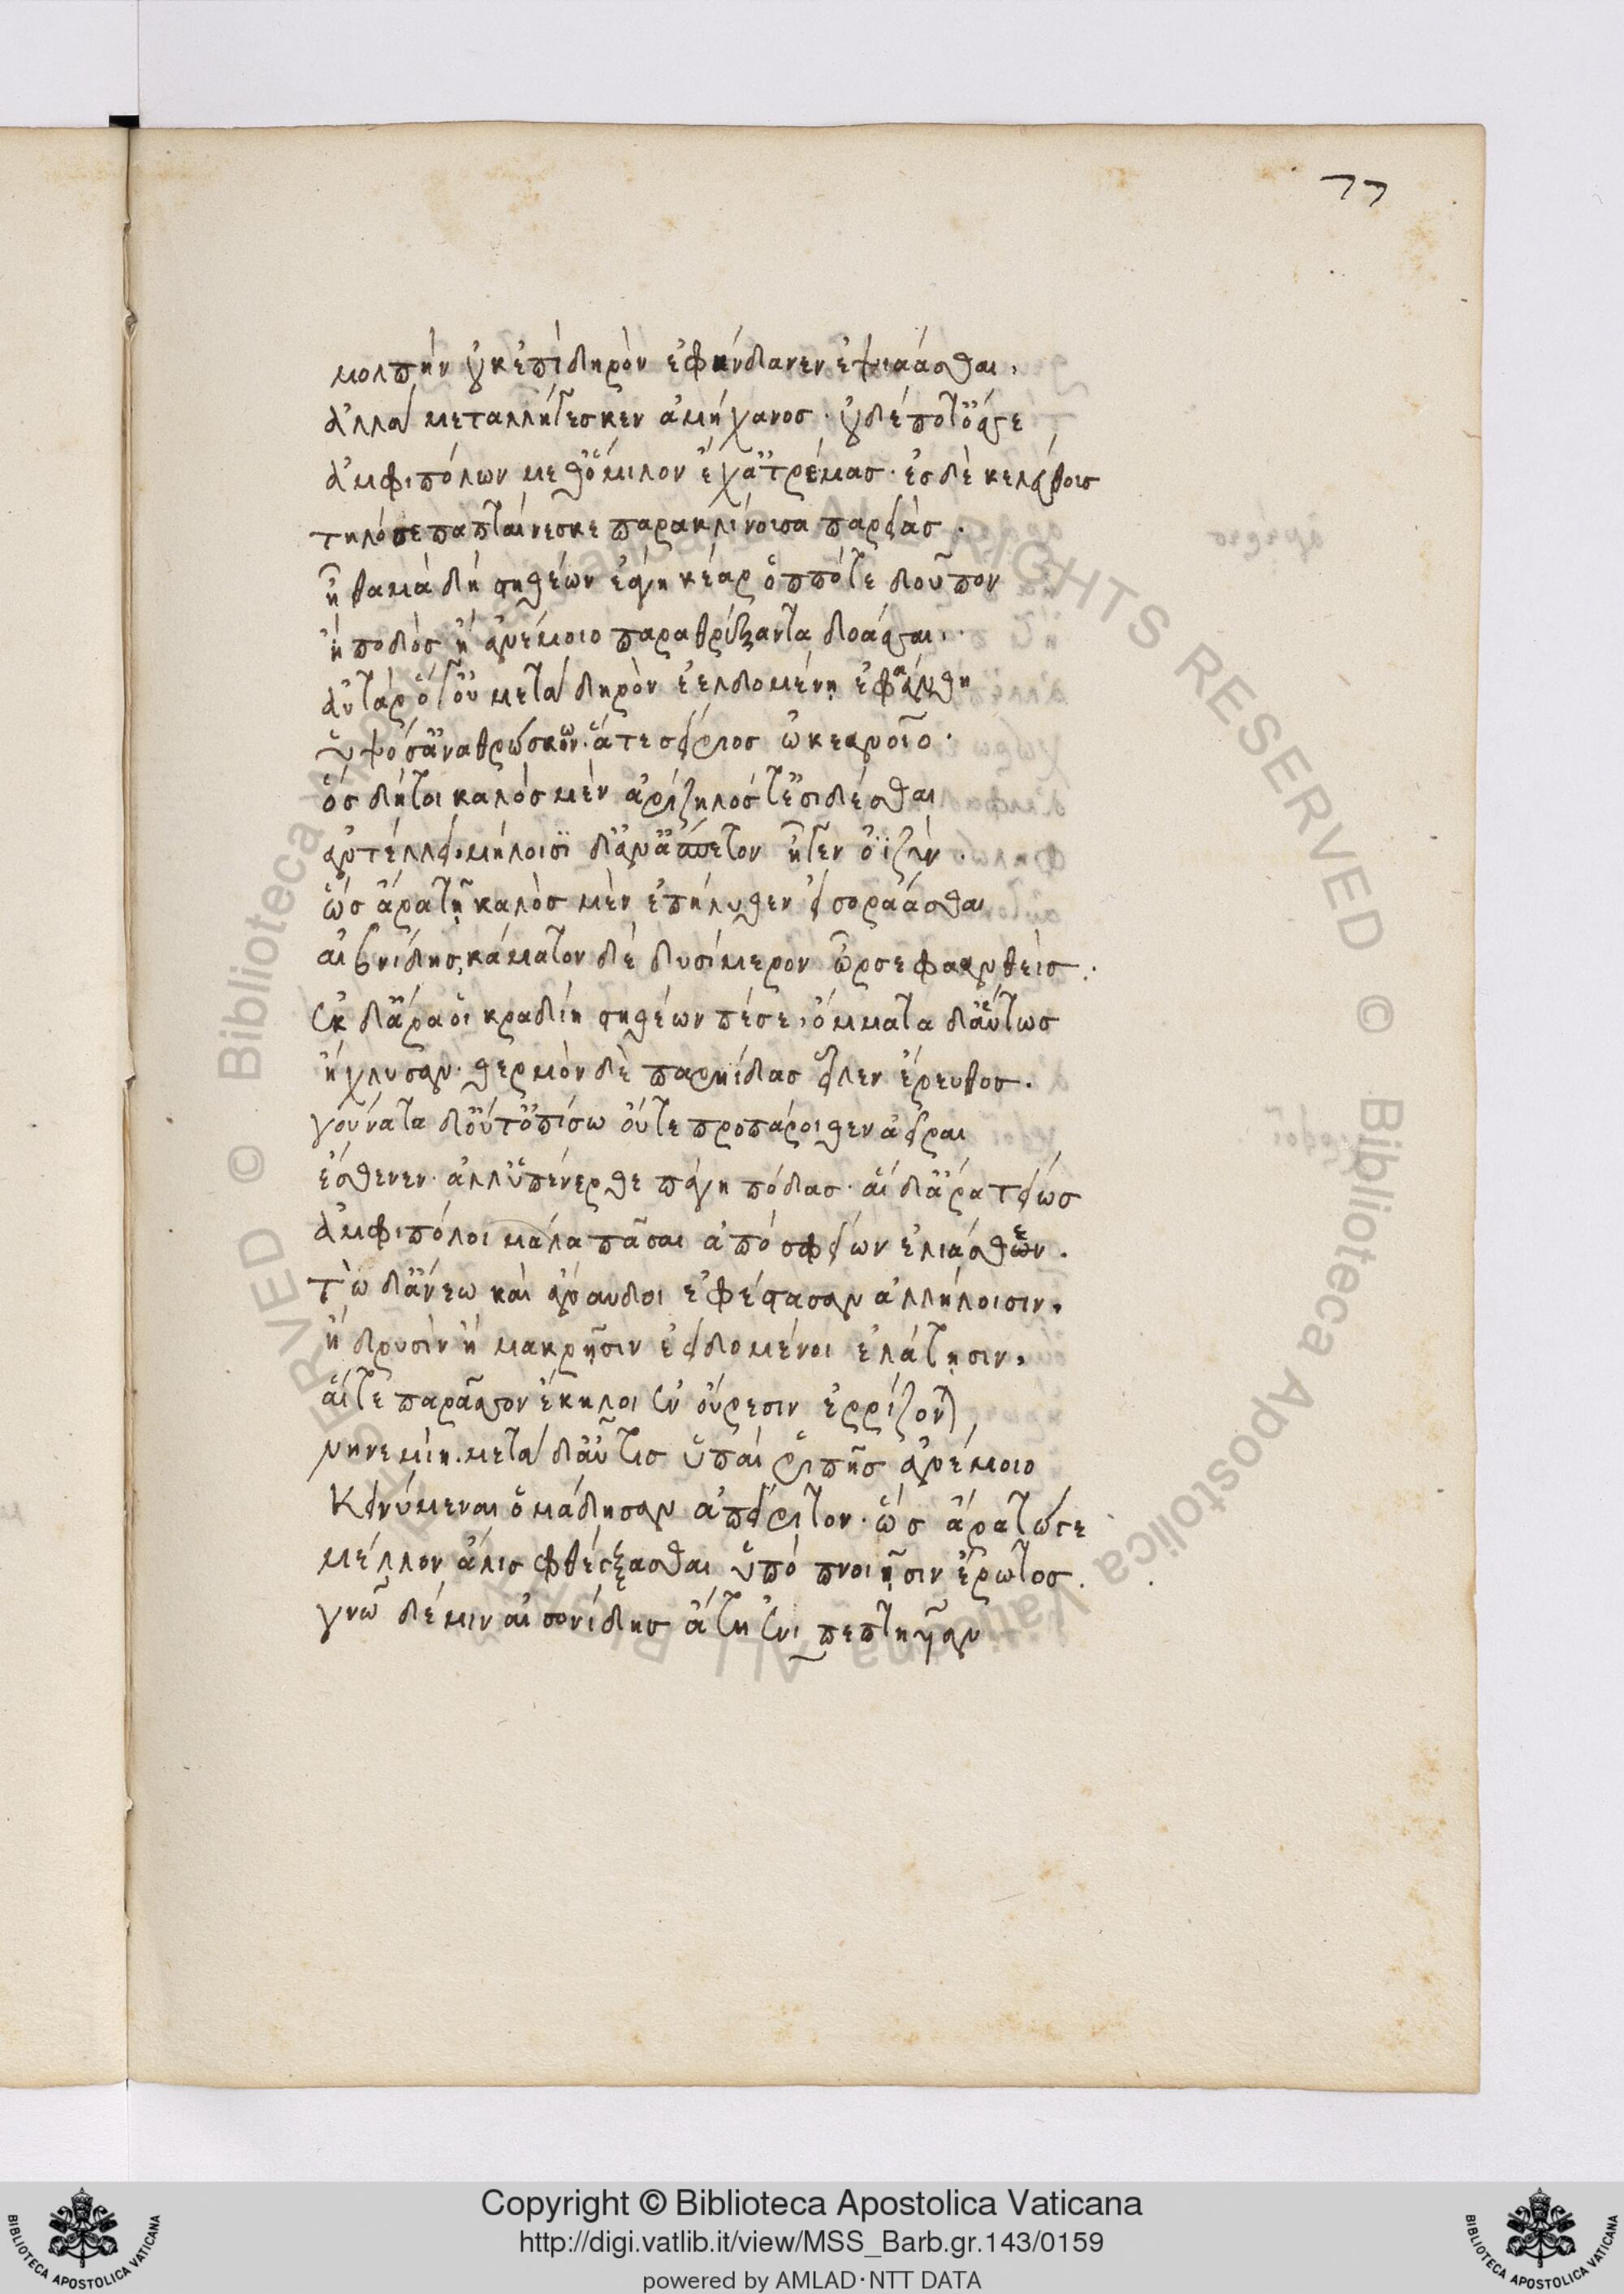 77
μολπὴν οὐκ ἐπὶ δηρὸν ἐφήνδανεν ἑψιάασθαι,
ἀλλὰ μεταλλήγεσκεν ἀμήχανος· οὐδέ ποτ' ὄσσε
ἀμφιπόλων μεθ' ὅμιλον ἔχ' ἀτρέμας· ἐς δὲ κελεύθοις
τηλόσε παπταίνεσκε παρακλίνουσα παρειάς.
ἦ θαμὰ δὴ στηθέων ἐάγη κέαρ ὁππότε δοῦπον
ἢ ποδὸς ἢ ἀνέμοιο παραθρέξαντα δοάσσαι.
αὐτὰρ ὅγ' οὐ μετὰ δηρὸν ἐελδομένη ἐφαάνθη
ὑψόσ' ἀναθρώσκων ἅτε σείριος ὠκεανοῖο.
ὃς δή τοι καλὸς μὲν ἀρίζηλός τ' ἐσιδέσθαι
ἀντέλλει· μήλοισι δ' ἀνὰ ἄσπετον ἧκεν ὀϊζύν.
ὣς ἄρα τῇ καλὸς μὲν ἐπήλυθεν εἰσοράασθαι
αἰσονίδης, κάματον δὲ δυσίμερον ὦρσε φαανθείς.
ἐκ δ' ἄρα οἱ κραδίη στηθέων πέσε, ὄμματα δ' αὔτως
ἤχλυσαν· θερμὸν δὲ παρηίδας εἷλεν ἔρευθος.
γούνατα δ' οὔτ' ὀπίσω οὔτε προπάροιθεν ἀεῖραι
ἔσθενεν· ἀλλ' ὑπένερθε πάγη πόδας· αἱ δ' ἄρα τείως
ἀμφιπόλοι μάλα πᾶσαι ἀπὸ σφείων ἐλίασθεν.
τὼ δ' ἄνεω καὶ ἄναυδοι ἐφέστασαν ἀλλήλοισιν,
ἢ δρυσὶν ἢ μακρῇσιν ἐειδομένοι ἐλάτῃσιν,
αἵτε παρᾶσσον ἕκηλοι ἐν οὔρεσιν ἐρρίζονται
νηνεμίη. μετὰ δ' αὖτις ὑπαὶ ῥιπῆς ἀνέμοιο
κινύμεναι ὁμάδησαν ἀπείριτον· ὣς ἄρα τώγε
μέλλον ἅλις φθέγξασθαι ὑπὸ πνοιῇσιν ἔρωτος.
γνῶ δέ μιν αἰσονίδης ἄτῃ ἐνὶ πεπτηυῖαν
Copyright © Biblioteca Apostolica Vaticana
http://digi.vatlib.it/view/MSS_Barb.gr.143/0159
powered by AMLAD·NTT DATA